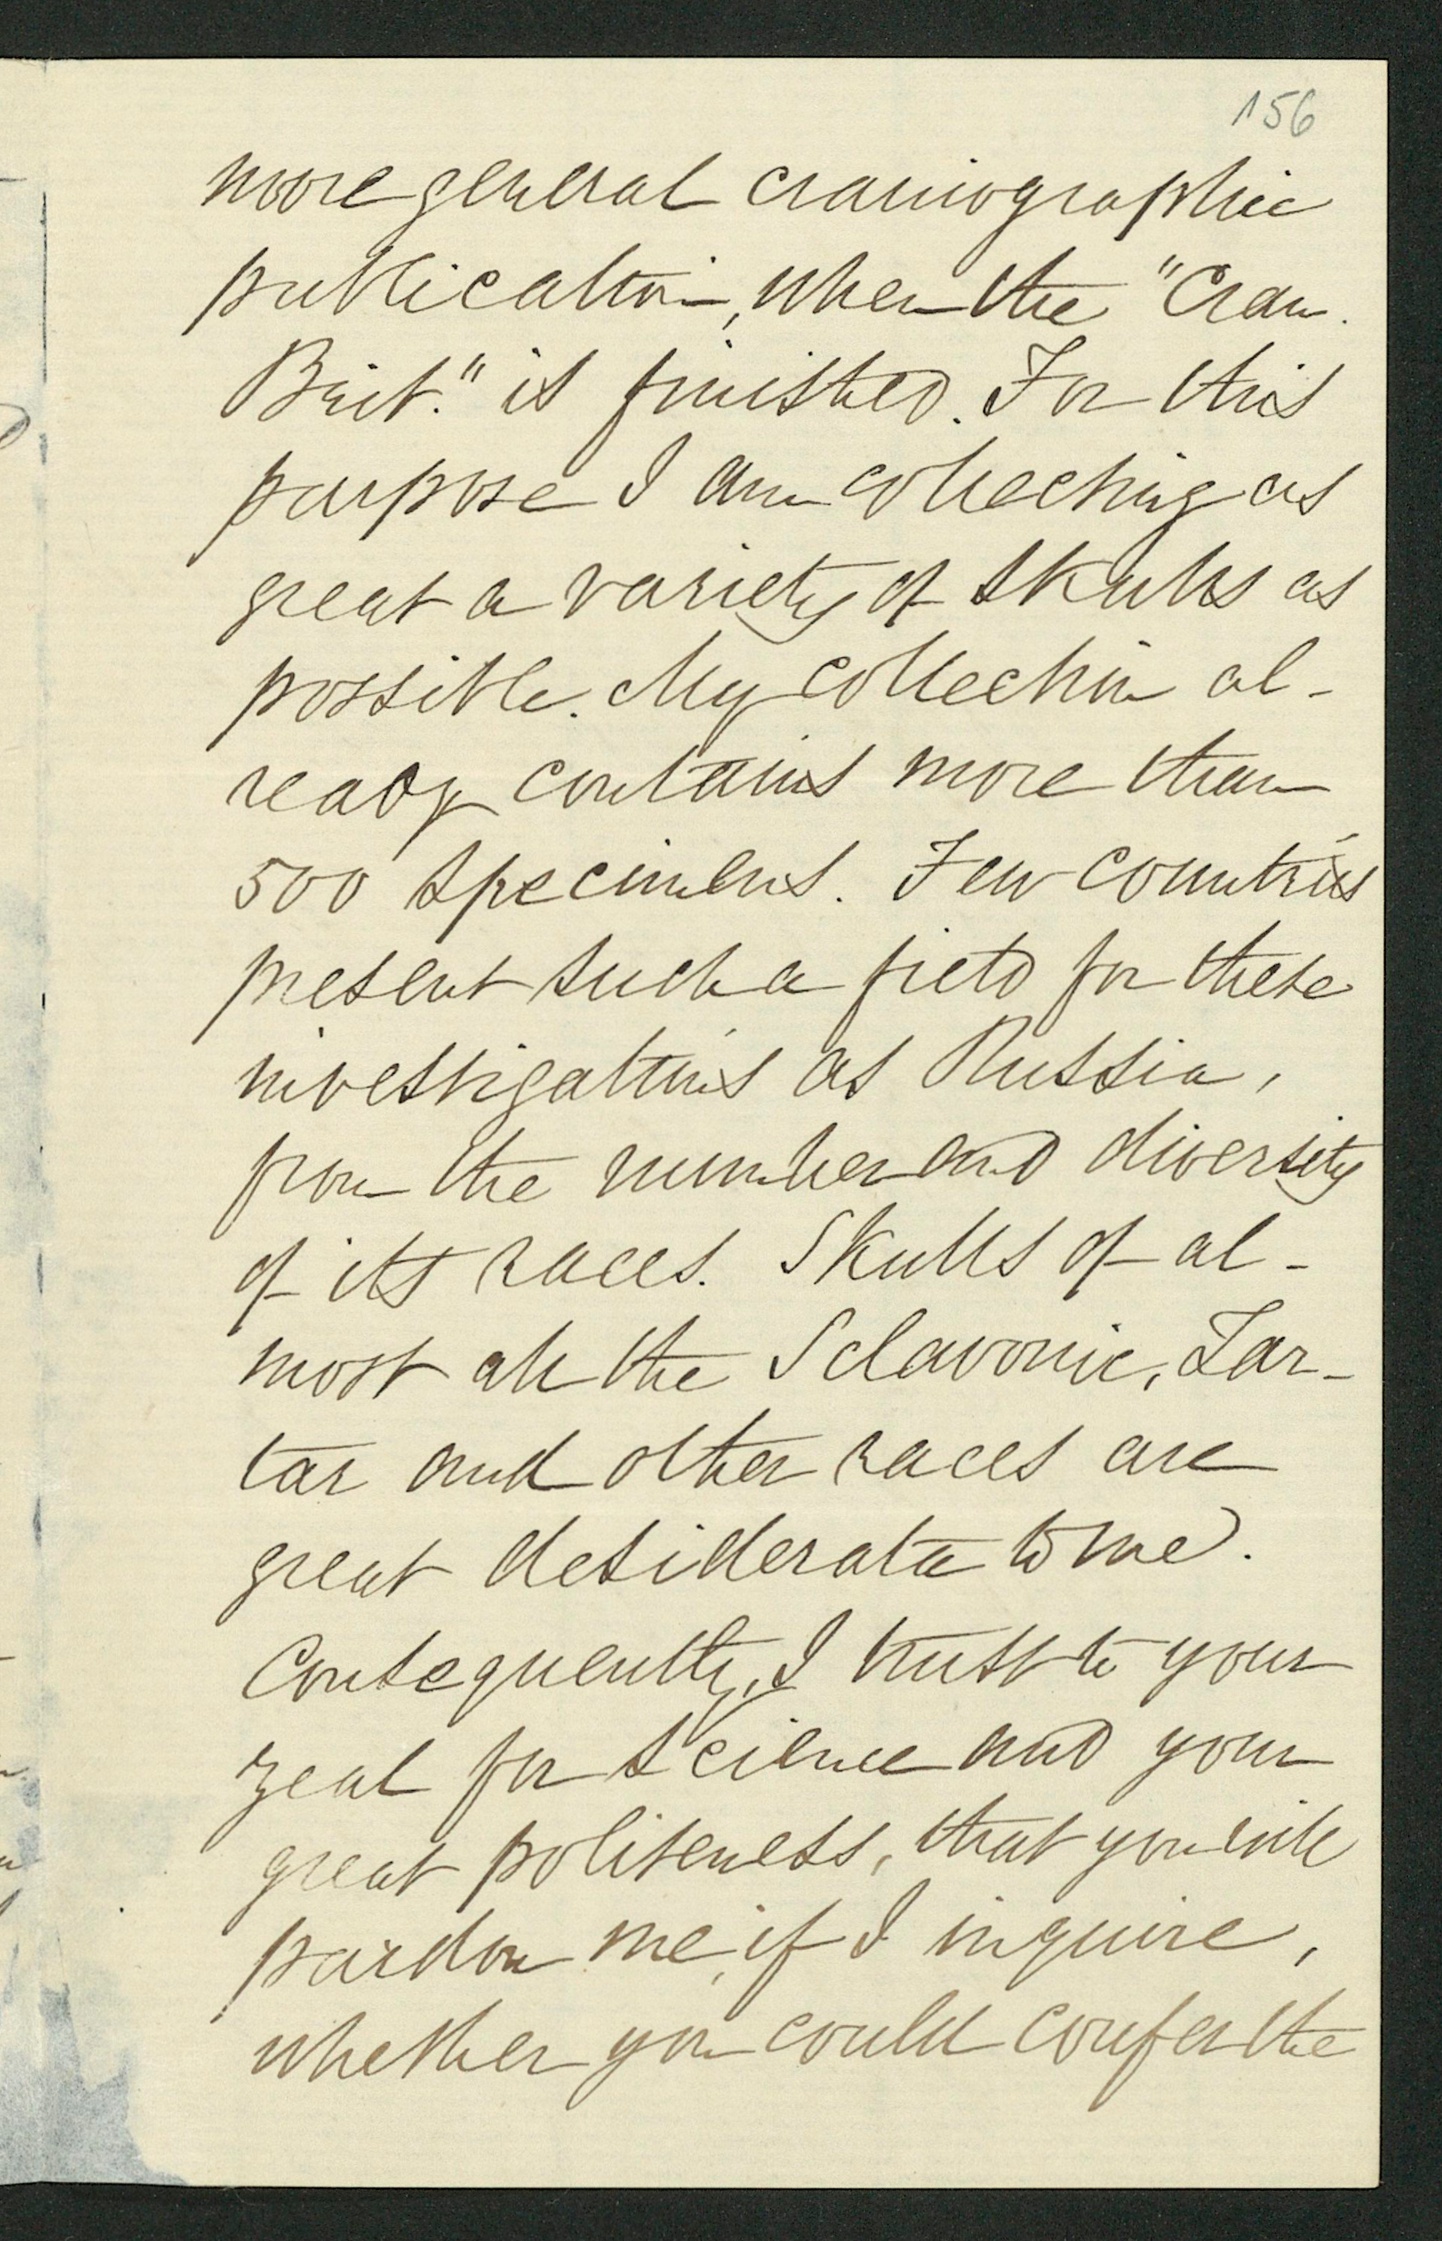 156
more general craniographic
publication, when the "Cran.
Brit." is finished. For this
purpose I am collecting as
great a variety of skulls as
possible. My collection al-
ready contains more than
500 specimens. Few countries
present such a field for these
investigations as Russia,
from the number and diversity
of its races. Skulls of al-
most all the Sclavonic, Tar-
tar and other races are
great desiderata to me.
Consequently, I trust to your
zeal for science and your
great politeness, that you will
pardon me, if I inquire,
whether you could confer the